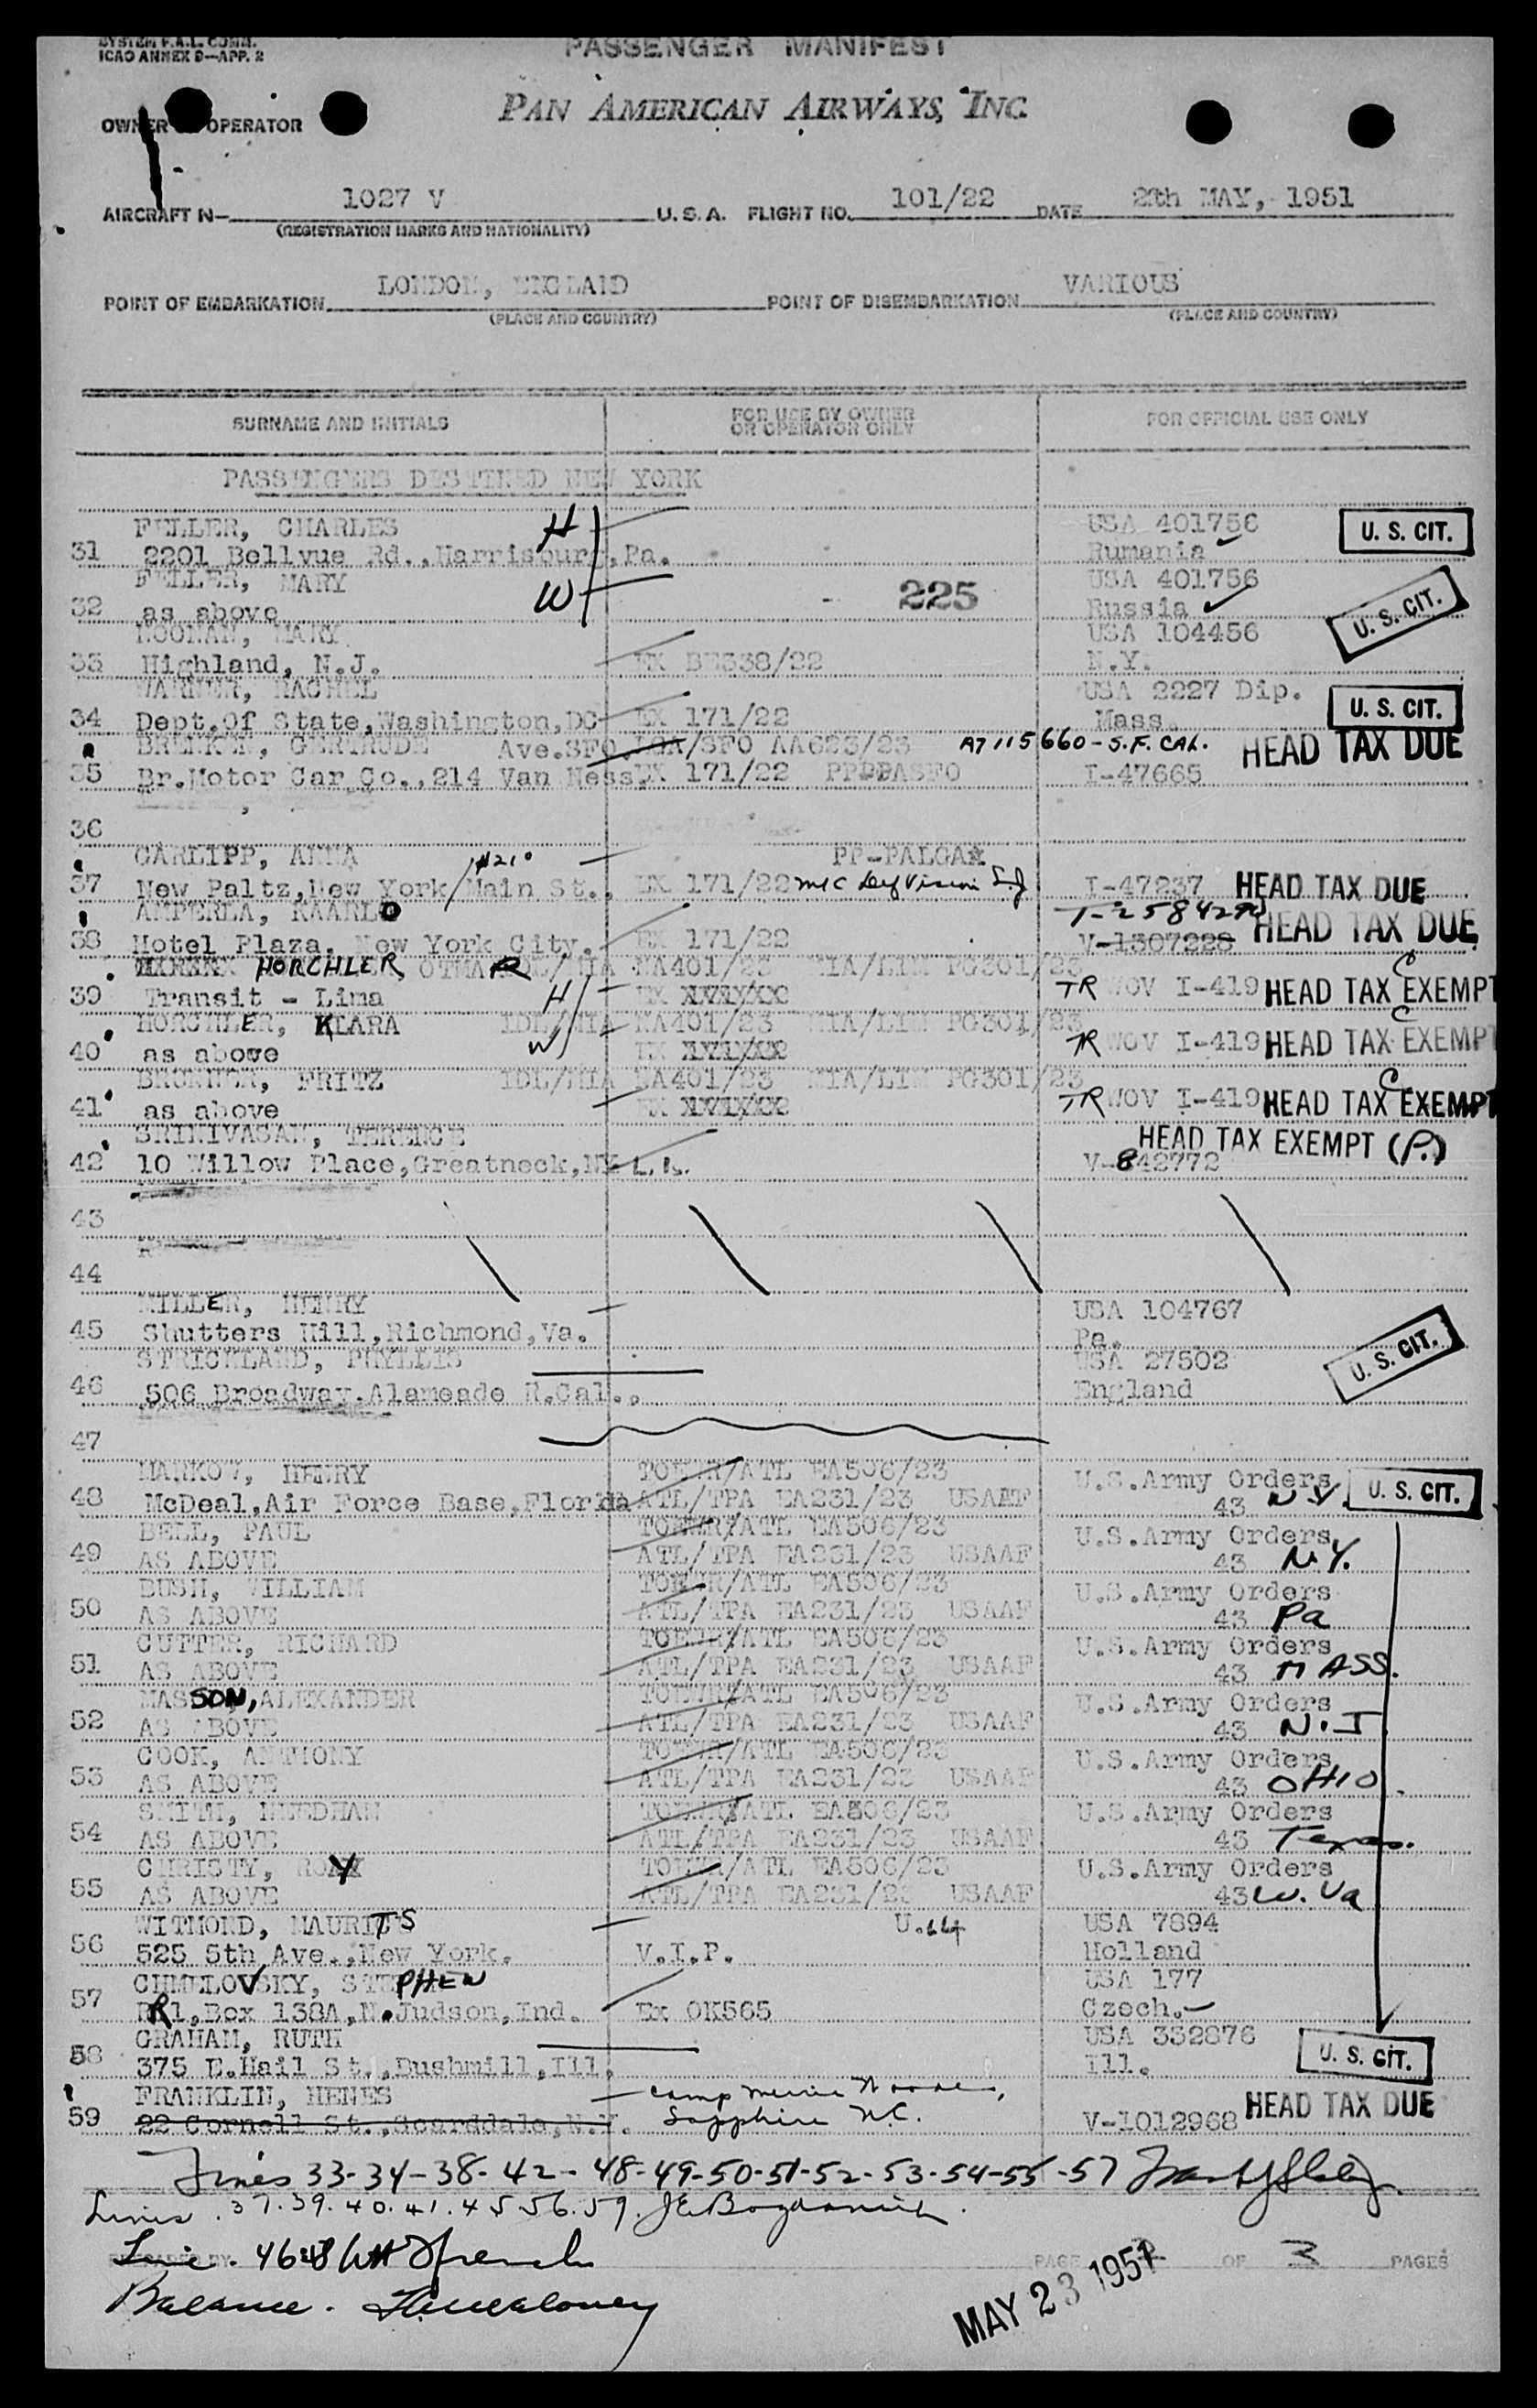 SYSTEM F.A.L. COMM.
ICAO ANNEX 9—APP. 2
PASSENGER MANIFEST
PAN AMERICAN AIRWAYS, INC.
OWNER OPERATOR
AIRCRAFT N— 1027 V U.S.A. FLIGHT NO. 101/22 DATE MAY, 1951
(REGISTRATION MARKS AND NATIONALITY)
POINT OF EMBARKATION LONDON, ENGLAND POINT OF DISEMBARKATION VARIOUS
(PLACE AND COUNTRY) (PLACE AND COUNTRY)
SURNAME AND INITIALS FOR USE BY OWNER OR OPERATOR ONLY FOR OFFICIAL USE ONLY
PASSENGERS DESTINED NEW YORK
FELLER, CHARLES H USA 401756 U. S. CIT.
31 2201 Bellvue Rd.,Harrisburg,Pa. Rumania
FELLER, MARY W 225 USA 401756
32 as above Russia U. S. CIT.
NOONAN, MARY USA 104456
33 Highland, N.J. EX BE338/22 N.Y.
WARNER, RACHEL USA 2227 Dip. U. S. CIT.
34 Dept.Of State,Washington,DC EX 171/22 Mass.
GERTRUDE Ave.SFO LGA/SFO AA623/23 A7115660-S.F. CAL. HEAD TAX DUE
35 Br.Motor Car Co.,214 Van Ness EX 171/22 I-47665
36
GARLIPP, ANNA #210 PP-PALGAR
37 New Paltz,New York/Main St., EX 171/22 I-47237 HEAD TAX DUE
AMPERLA, KAARLO HEAD TAX DUE
38 Hotel Plaza, New York City. EX 171/22 V-1307228
HORCHLER, OTMAR /MIA NA401/23 MIA/LIM PG301/23
39 Transit - Lima H EX TR WOV I-419 HEAD TAX EXEMPT C
HORCHLER, KLARA IDL/MIA NA401/23 MIA/LIM PG301/23
40 as above W EX TR WOV I-419 HEAD TAX EXEMPT C
BRUNNER, FRITZ IDL/MIA NA401/23 MIA/LIM PG301/23
41 as above EX TR WOV I-419 HEAD TAX EXEMPT C
SRINIVASAN, TERENCE HEAD TAX EXEMPT (P.)
42 10 Willow Place,Greatneck,NY L.I. V-842772
43
44
MILLER, HENRY USA 104767
45 Shutters Hill,Richmond,Va. Pa.
STRICKLAND, PHYLLIS USA 27502 U. S. CIT.
46 506 Broadway.Alameade R.Cal., England
47
MARKOW, HENRY TOEWR/ATL EA506/23 U.S.Army Orders U. S. CIT.
48 McDeal,Air Force Base,Florida ATL/TPA EA231/23 USAAF 43 N.Y.
BELL, PAUL TOEWR/ATL EA506/23 U.S.Army Orders
49 AS ABOVE ATL/TPA EA231/23 USAAF 43 N.Y.
BUSH, WILLIAM TOEWR/ATL EA506/23 U.S.Army Orders
50 AS ABOVE ATL/TPA EA231/23 USAAF 43 Pa
CUTTER, RICHARD TOEWR/ATL EA506/23 U.S.Army Orders
51 AS ABOVE ATL/TPA EA231/23 USAAF 43 MASS.
MASSON, ALEXANDER TOEWR/ATL EA506/23 U.S.Army Orders
52 AS ABOVE ATL/TPA EA231/23 USAAF 43 N.J
COOK, ANTHONY TOEWR/ATL EA506/23 U.S.Army Orders
53 AS ABOVE ATL/TPA EA231/23 USAAF 43 OHIO.
SMITH, NEEDHAM TOEWR/ATL EA506/23 U.S.Army Orders
54 AS ABOVE ATL/TPA EA231/23 USAAF 43 Texas.
CHRISTY, ROY TOEWR/ATL EA506/23 U.S.Army Orders
55 AS ABOVE ATL/TPA EA231/23 USAAF 43 W. Va
WITMOND, MAURITS USA 7894
56 525 5th Ave.,New York. V.I.P. Holland
CHMELOVSKY, STEPHEN USA 177
57 RR1,Box 138A,N.Judson,Ind. Ex OK565 Czech.
GRAHAM, RUTH USA 332876
58 375 E.Hail St.,Bushmill,Ill. Ill. U. S. CIT.
FRANKLIN, HENES Camp HEAD TAX DUE
59 22 Cornell St.,Scarddale,N.Y. Sapphire N.C. V-1012968
Lines 33-34-38-42-48-49-50-51-52-53-54-55-57
Lines 37.39.40.41.45.56.59.
Line. 46
PAGE 2 OF 3 PAGES
Balance.
MAY 23 1951